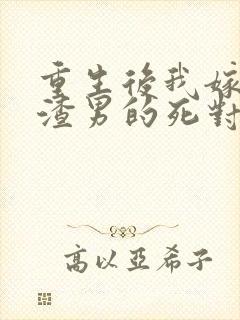 重生後我嫁
渣男的死對
高以亞希子